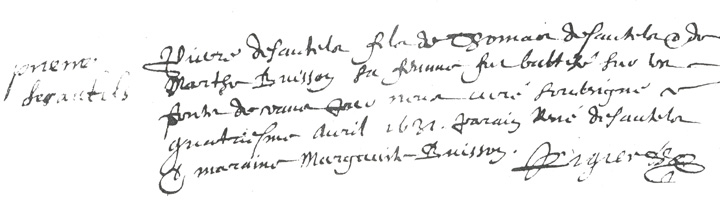 pierre
desautels
Pierre desautels fils de Thomas desautels & de
Marthe Buisson sa femme fut battisé sur les
fonts de ceans par nous curé soubsigné le
quatriesme Avril 1631. parain René desautels
& maraine Margueritte Buisson.